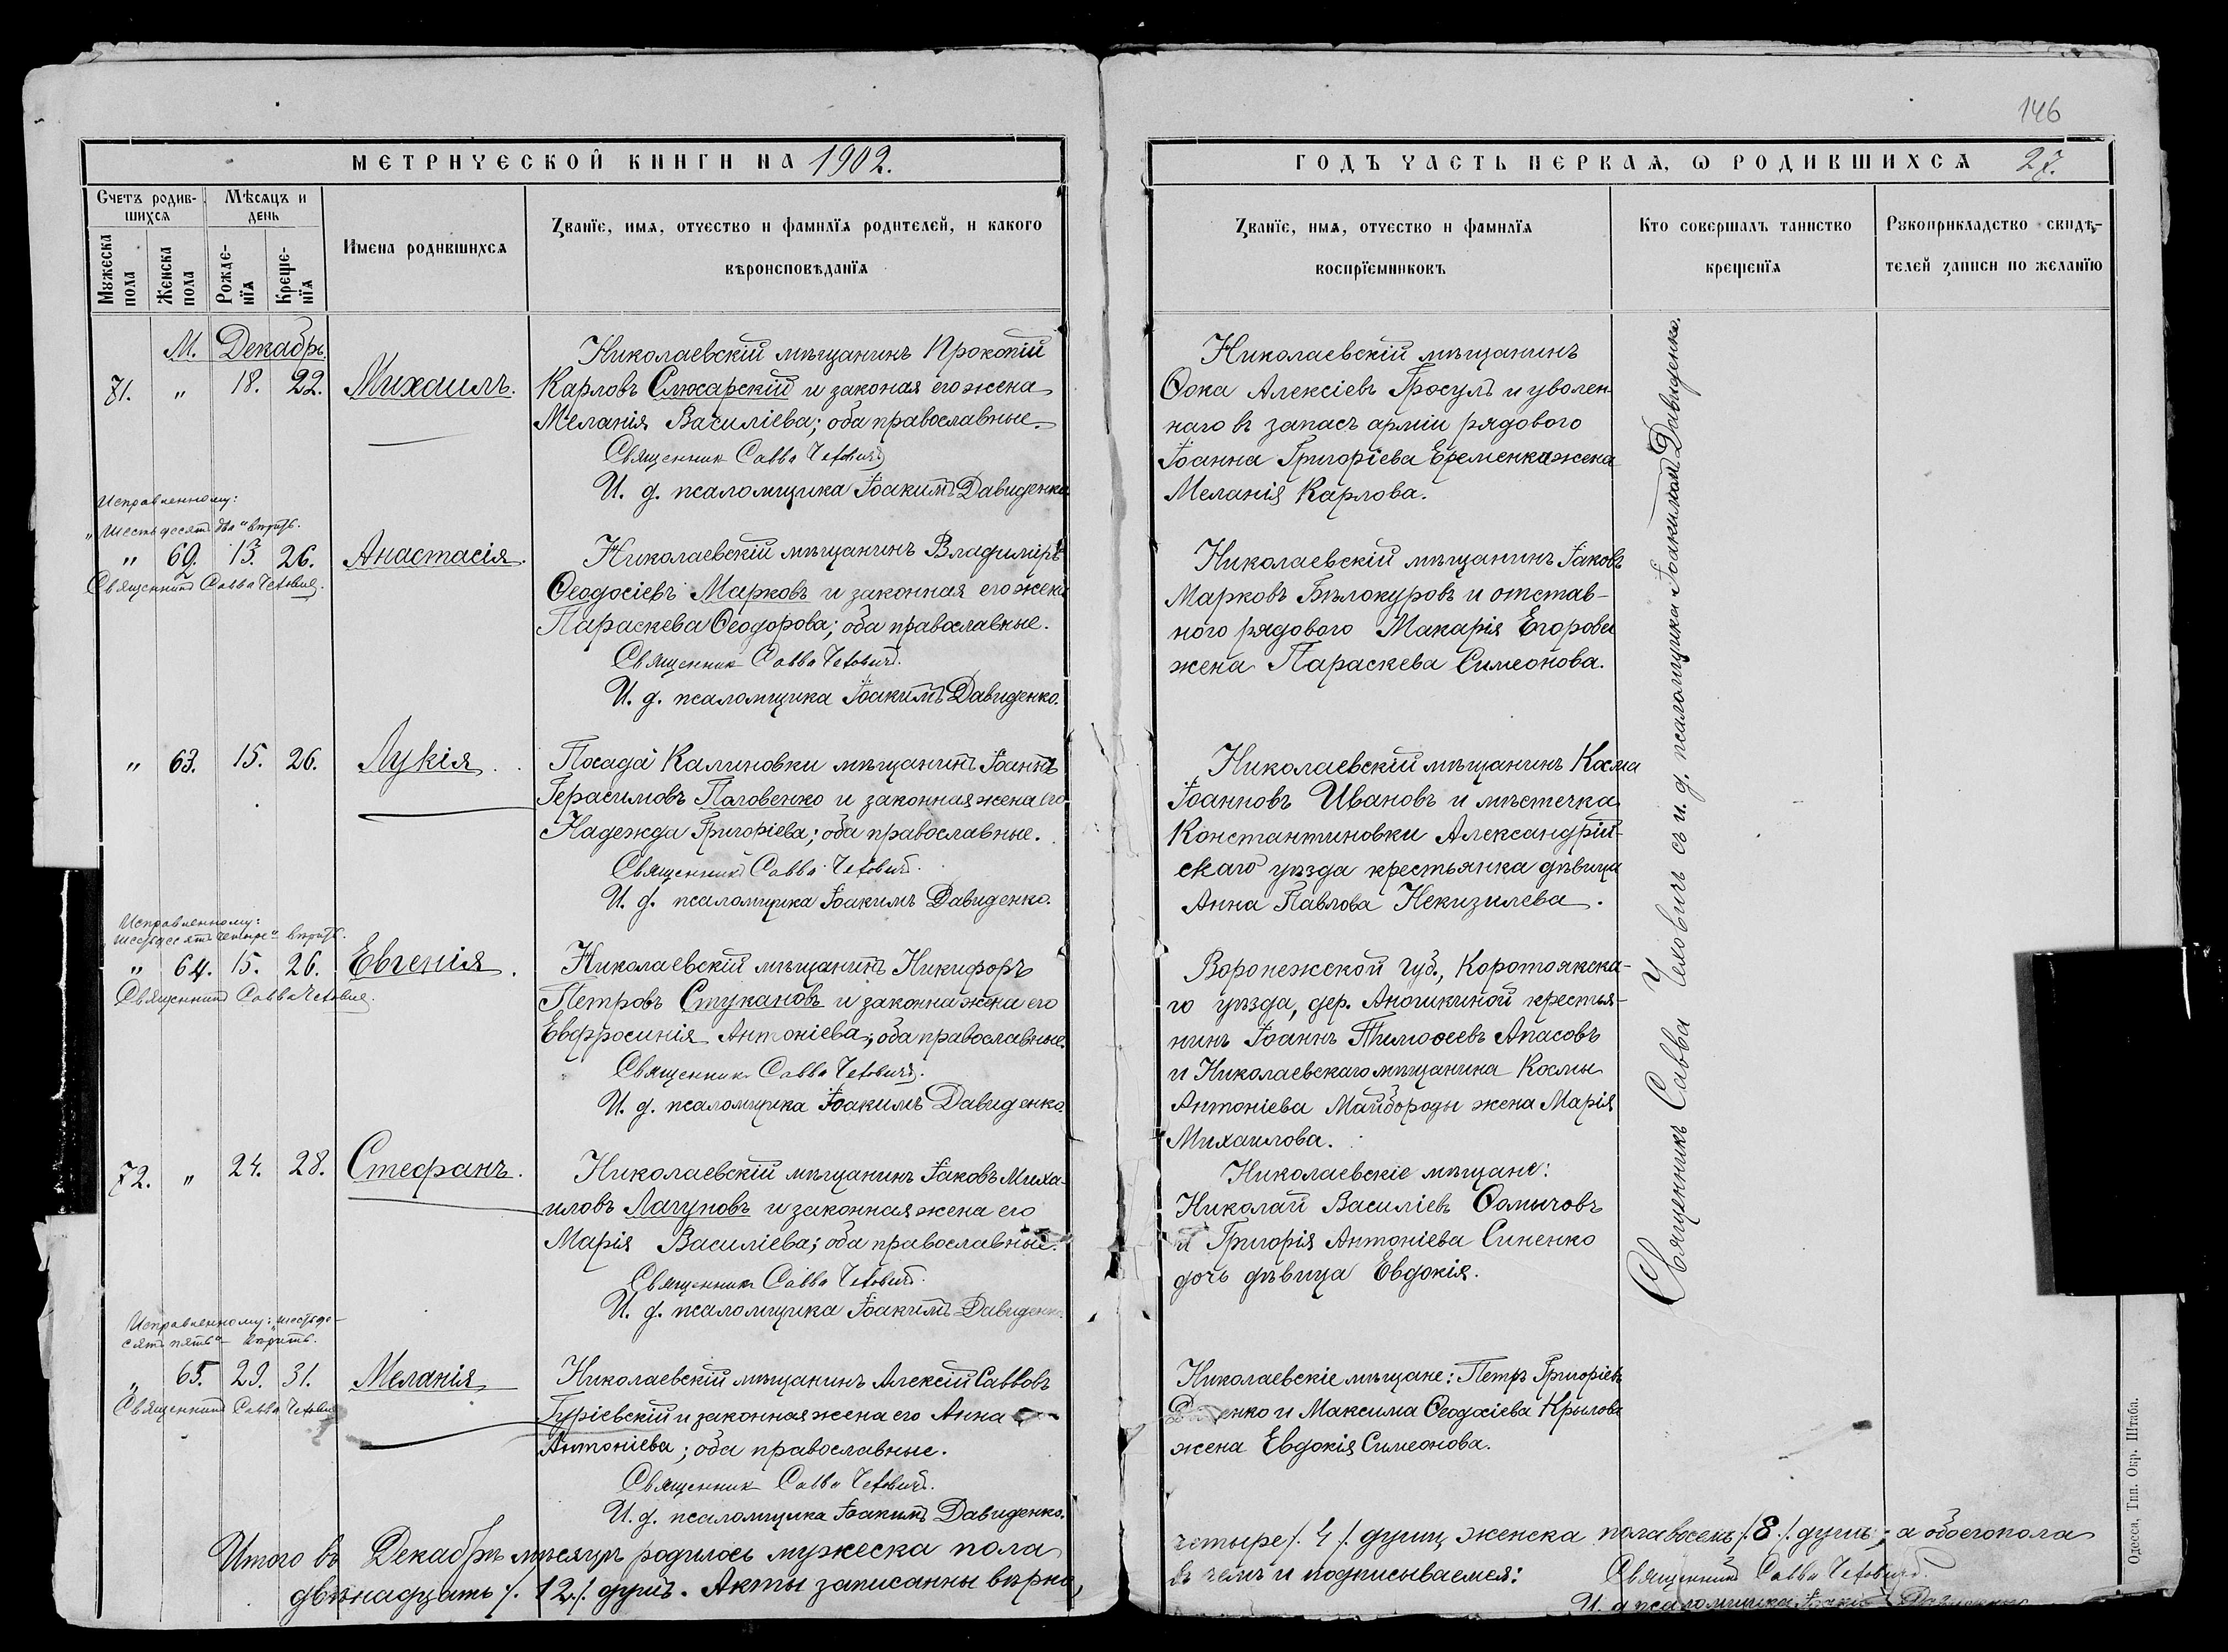 146
МЕТРИЧЕСКОЙ КНИГИ НА 1902.
Счетъ родив-
шихся
Мѣсяцъ и
день
Мужеска
пола
Женска
пола
Рожде-
нїя
Креще-
нїя
Имена родившихся
Званїе, имя, отчество и фамилїя родителей, и какого
вѣроисповѣданїя
М. Декабрь
71. " 18. 22. Михаилъ.
Николаевскій мѣщанинъ Прокопій
Карловъ Слюсарскій и законая его жена
Меланія Василіева; оба православные.
Священник Савва Челович
И. д. псаломщика Іоакимъ Давиденко
Исправленному:
„Шестьдесят два" вѣрить.
" 62. 13. 26. Анастасія.
Священникъ Савва Челович.
Николаевскій мѣщанинъ Владиміръ
Ѳеодосіевъ Марковъ и законная его жена
Параскева Ѳеодорова; оба православные.
Священник Савва Челович.
И. д. псаломщика Іоакимъ Давиденко.
" 63. 15. 26. Лукія.
Посада Калиновки мѣщанинъ Іоаннъ
Герасимовъ Паговенко и законная жена его
Надежда Григоріева; оба православные.
Священникъ Савва Челович.
И. д. псаломщика Іоакимъ Давиденко.
Исправленному:
шестьдесятъ четыре" вѣрить.
" 64. 15. 26. Евгенія.
Священникъ Савва Челович.
Николаевскій мѣщанинъ Никифоръ
Петровъ Стукановъ и законна жена его
Евфросинія Антоніева; оба православные.
Священник Савва Челович.
И. д. псаломщика Іоакимъ Давиденко
72. " 24. 28. Стефанъ.
Николаевскій мѣщанинъ Іаковъ Миха-
иловъ Лагуновъ и законная жена его
Марія Василіева; оба православные.
Священник Савва Челович.
И. д. псаломщика Іоакимъ Давиденко.
Исправленному: „шестьде-
сят пять" вѣрить.
" 65. 29. 31. Меланія
Священникъ Савва Челович
Николаевскій мѣщанинъ Алексій Саввовъ
Гуріевскій и законная жена его Анна
Антоніева; оба православные.
Священник Савва Челович.
И. д. псаломщика Іоакимъ Давиденко.
Итого въ Декабрѣ мѣсяцѣ родилось мужеска пола
двѣнадцать /. 12 ./ душъ. Акты записанны вѣрно,
ГОДЪ ЧАСТЬ ПЕРВАЯ, Ѡ РОДИВШИХСЯ 27.
Званїе, имя, отчество и фамилїя
воспрїемниковъ
Кто совершалъ таинство
крещенїя
Рукоприкладство свидѣ-
телей записи по желанїю
Николаевскій мѣщанинъ
Ѳока Алексіевъ Гросулъ и уволен-
наго въ запасъ арміи рядового
Іоанна Григоріева Еременка жена
Меланія Карлова.
Николаевскій мѣщанинъ Іаковъ
Марковъ Бѣлокуровъ и отстав-
ного рядового Макарія Егорова
жена Параскева Симеонова.
Николаевскій мѣщанинъ Косма
Іоанновъ Ивановъ и мѣстечка
Константиновки Александрій-
скаго уѣзда крестьянка дѣвица
Анна Павлова Некизилева.
Воронежской губ., Коротоякска-
го уѣзда, дер. Аношкиной крестья-
нинъ Іоаннъ Тимоѳеевъ Апасовъ
и Николаевскаго мѣщанина Космы
Антоніева Майбороды жена Марія
Михаилова.
Николаевскіе мѣщане:
Николай Василіевъ Ѳомичовъ
и Григорія Антоніева Синенко
дочь дѣвица Евдокія.
Николаевскіе мѣщане: Петръ Григоріевъ
и Максима Ѳеодосіева Крылова
жена Евдокія Симеонова.
Священникъ Савва Челович съ и. д. псаломщика Іоакимомъ Давиденко.
четыре /. 4 ./ душъ женска пола восемь /. 8 ./ душъ; а обоего пола
въ чемъ и подписываемся:
Священникъ Савва Челович.
И. д. псаломщика Іоакимъ Давиденко
Одесса, Тип. Окр. Штаба.